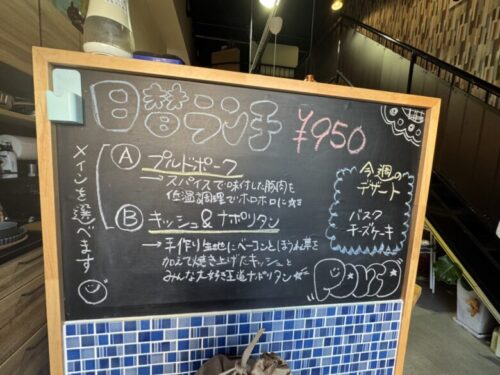 日替ランチ
¥950
メインを選べます
Ⓐ プルドポーク
→スパイスで味付した豚肉を
低温調理でホロホロに☆
Ⓑ キッシュ&ナポリタン
→手作り生地にベーコンとほうれん草を
加えて焼き上げたキッシュと
みんな大好き王道ナポリタン☆
今週の
デザート
バスク
チーズケーキ